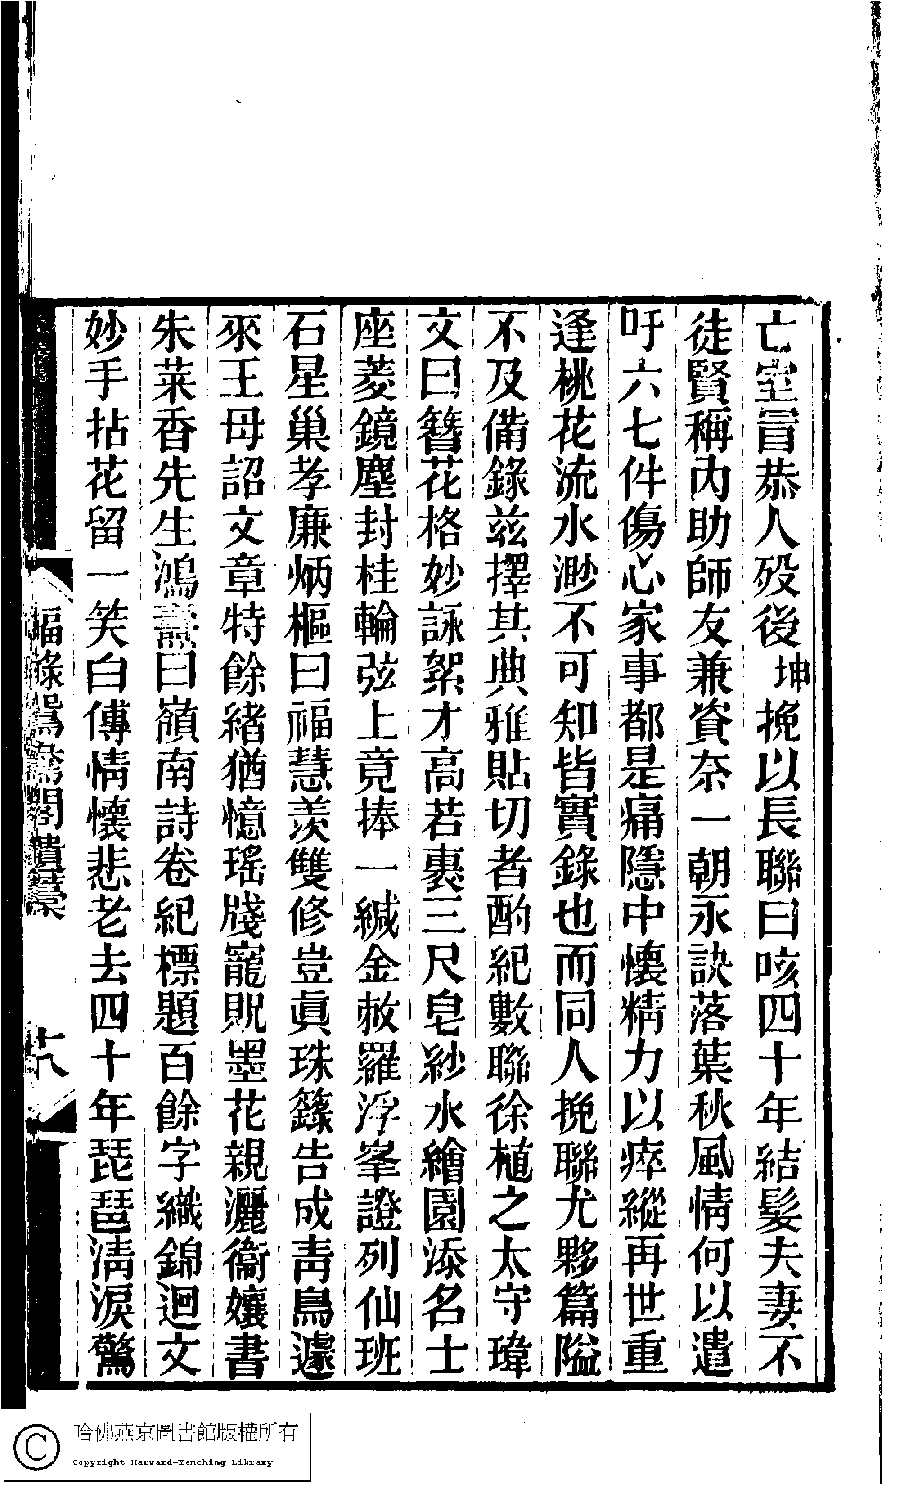 亡室冒恭人殁後坤挽以長聯曰咳四十年結髮夫妻不
徒賢稱內助師友兼資奈一朝永訣落葉秋風情何以遣
吁六七件傷心家事都是痛隱中懷精力以瘁縱再世重
逢桃花流水渺不可知皆實錄也而同人挽聯尤夥篇隘
不及備錄兹擇其典雅貼切者酌紀數聯徐植之太守瑋
文曰簪花格妙詠絮才高若裹三尺皂紗水繪園添名士
座菱鏡塵封桂輪弦上竟捧一緘金敕羅浮峯證列仙班
石星巢孝廉炳樞曰福慧羨雙修豈眞珠籙告成靑鳥遽
來王母詔文章特餘緒猶憶瑤牋寵貺墨花親灑衞孃書
朱萊香先生鴻燾曰嶺南詩卷紀標題百餘字織錦迴文
妙手拈花留一笑白傅情懷悲老去四十年琵琶清淚驚
福祿鴛鴦閣遺稾
十八
哈佛燕京圖書館版權所有
Copyright Harvard-Yenching Library